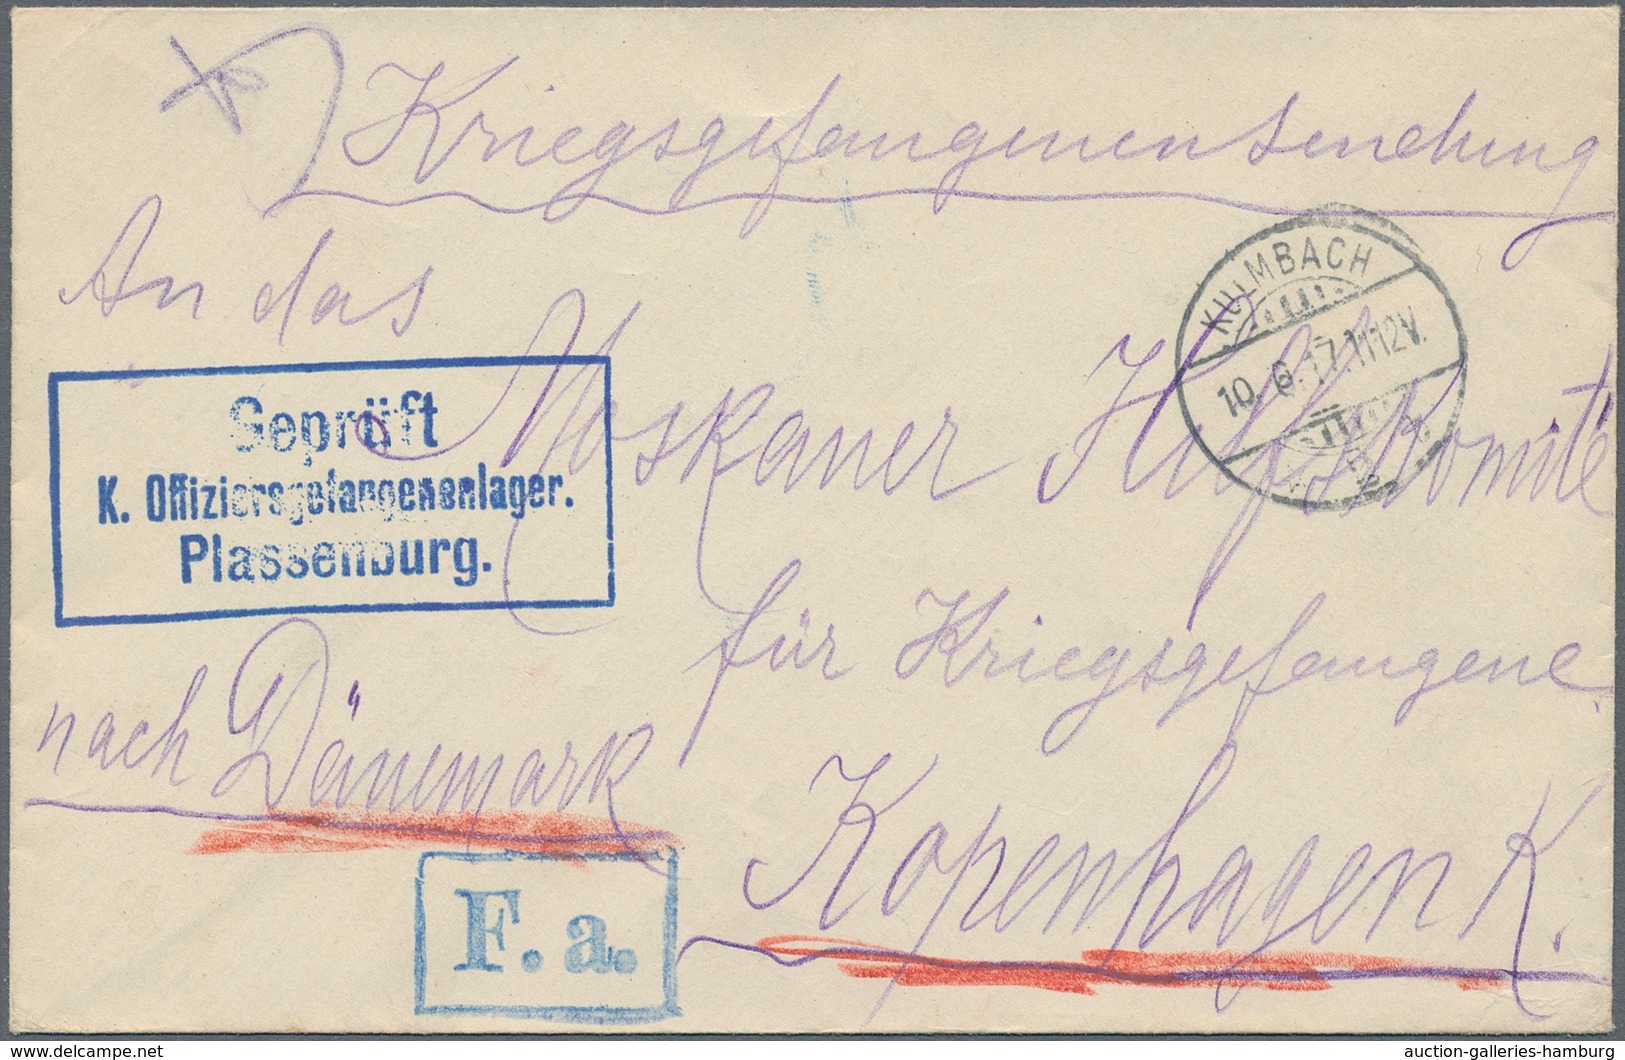 Kriegsgefangenensendung
An das
Moskauer Hilfskomité
für Kriegsgefangene
nach Dänemark
Kopenhagen K.
Geprüft
K. Offiziersgefangenenlager.
Plassenburg.
KULMBACH
10. 6. 17. 11-12V.
F. a.
delcampe.net
auction-galleries-hamburg